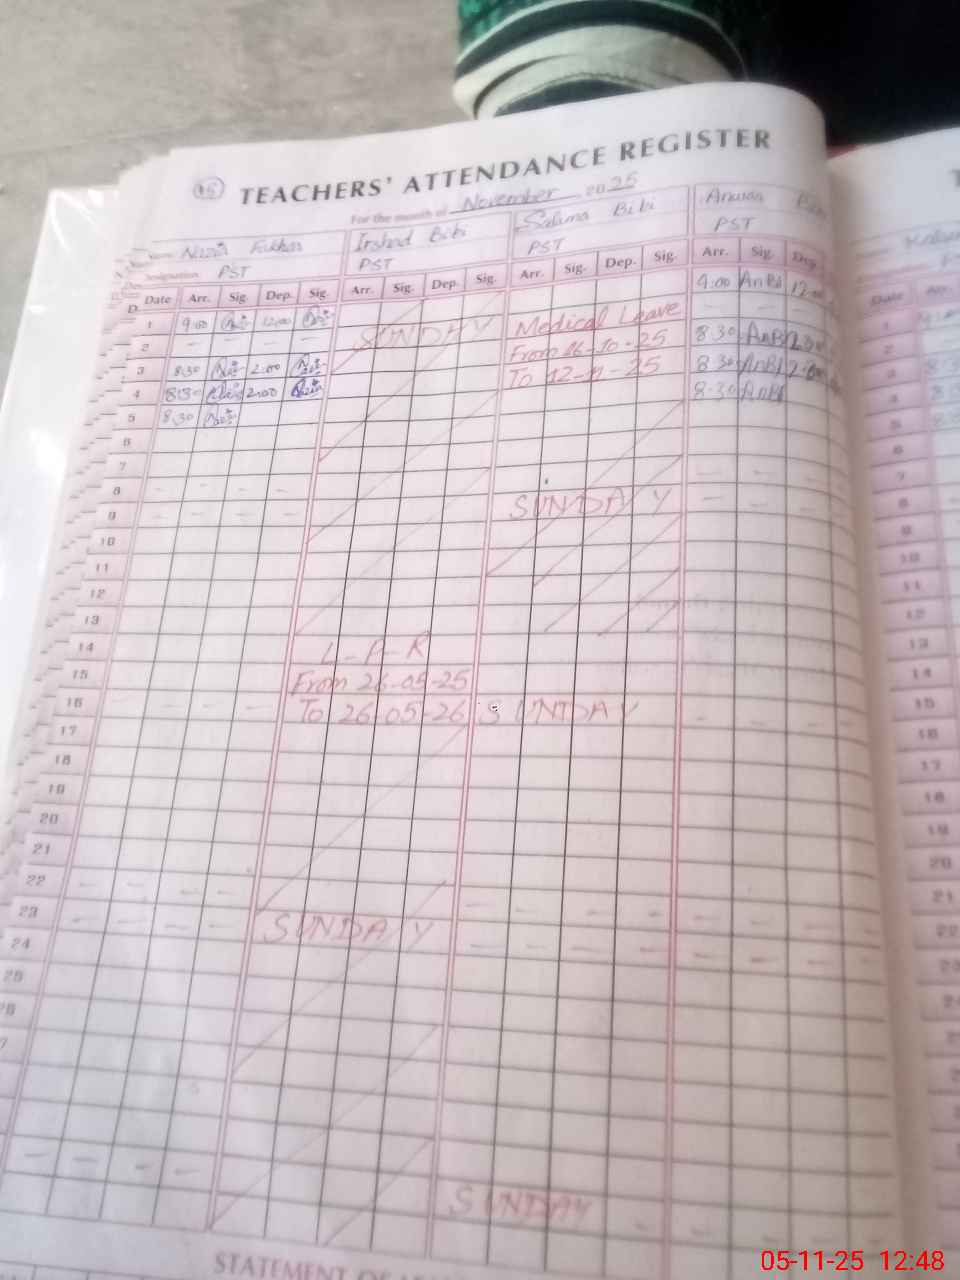 15
TEACHERS' ATTENDANCE REGISTER
For the month of November 2025
Name Nazia Fakhar Irshad Bibi Salima Bibi Anwar
Designation PST PST PST PST
Date Arr. Sig. Dep. Sig. Arr. Sig. Dep. Sig. Arr. Sig. Dep. Sig. Arr. Sig. Dep.
1 9:00 12:00 9:00 AnBi 12:00
2 SUNDAY Medical Leave
3 8:30 2:00 From 16-10-25 8:30 AnBi
4 8:30 2:00 To 12-11-25 8:30 AnBi
5 8:30 8:30 AnBi
6
7
8
9 SUNDAY
10
11
12
13
14 L-P-R
15 From 26-05-25
16 To 26-05-26 SUNDAY
17
18
19
20
21
22
23 SUNDAY
24
25
SUNDAY
STATEMENT OF
Date
1
2
3
4
5
6
7
8
9
10
11
12
13
14
15
16
17
18
19
20
21
22
05-11-25 12:48